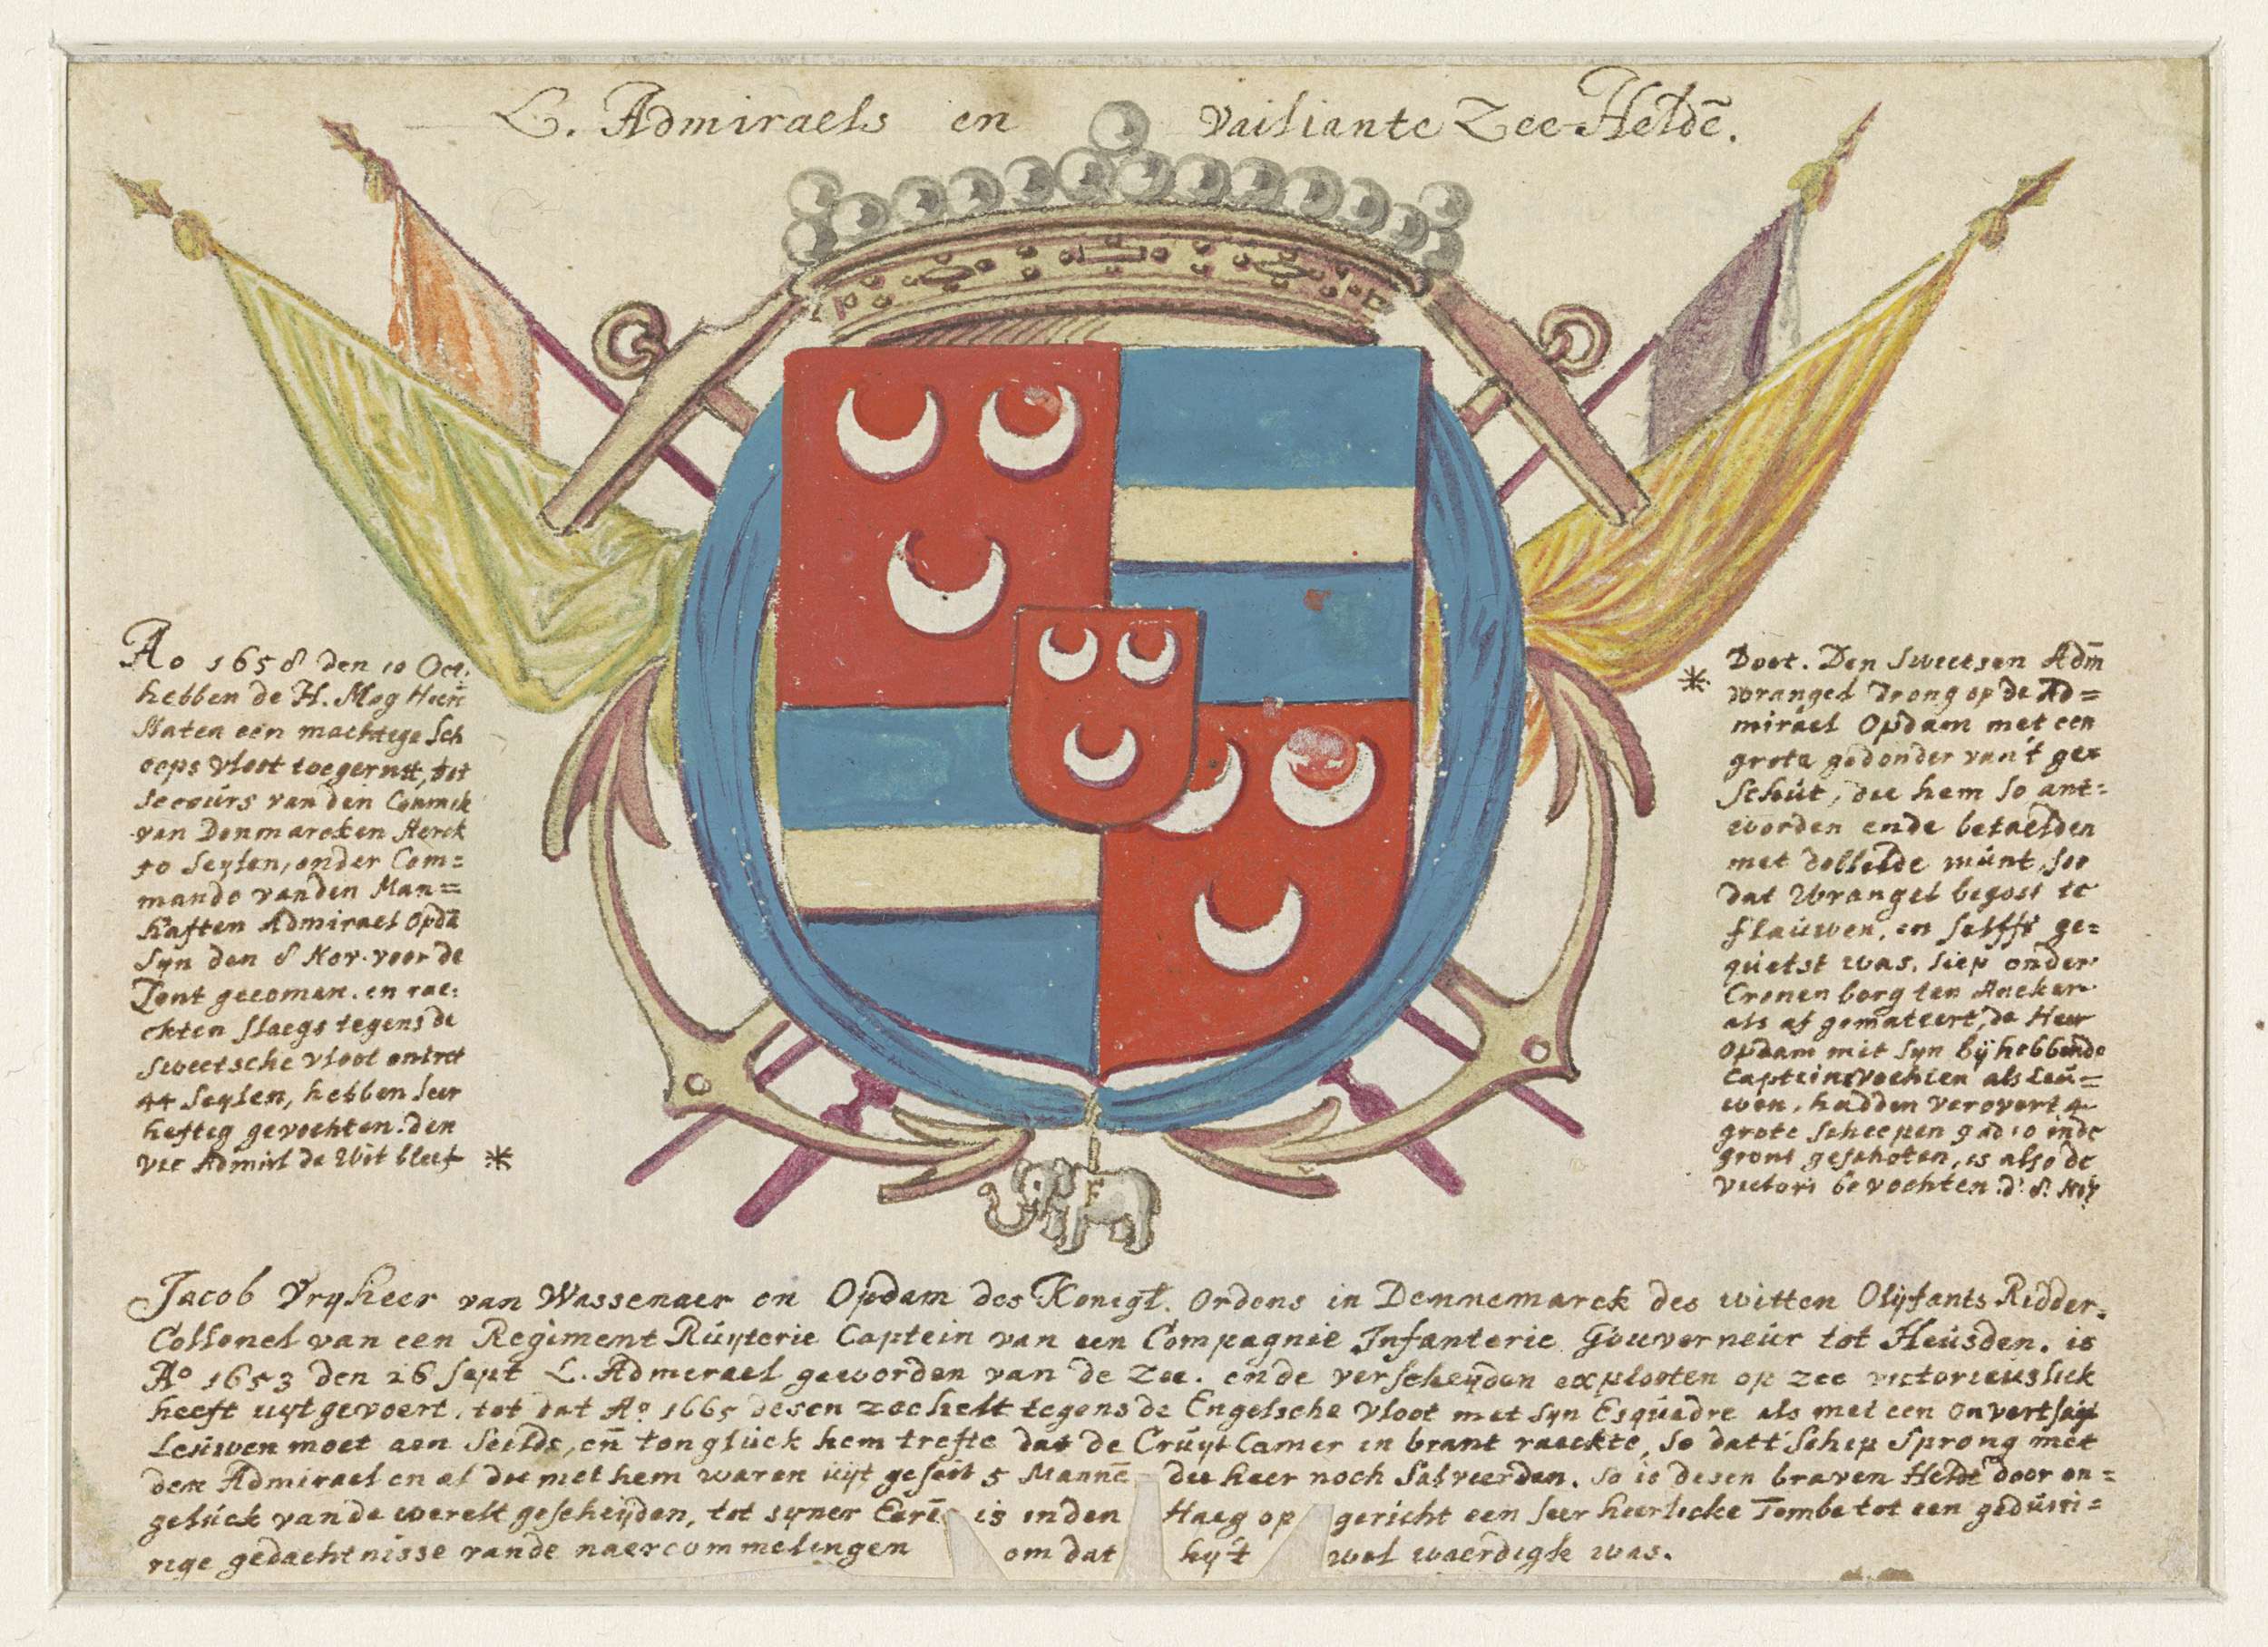 L. Admiraels en vailiante Zee-Heldē.
Ao 1658 den 10 Oct.
hebben de H. Mog Heeri
Staten een machtege Sch
eeps vloot toegerust, tot
secours van den Connick
van Denmarcken sterck
40 Seylen, onder Com=
mando vanden Man=
haften Admirael Opdā
syn den 8 Nov. voor de
Zont gecomen. en rae:
ckten slaegs tegens de
sweetsche vloot ontret
44 Seylen, hebben seer
heftig gevochten. den
vic Admirl de Wit bleef *
* Doot. Den Sweetsen Adm̄
wrangel drong op de Ad=
mirael Opdam met een
grote gedonder van't ges
schut, die hem so ant=
worden ende betaelden
met dobbelde munt, soo
dat Wrangel begost te
flauwen, en selffs ge=
quetst was, liep onder
Cronenborg ten Ancker
als af gemateert, de Heer
Opdam met syn by hebbende
Capteins vochten als Leu=
wen, hadden verovert 4
grote scheepen 9 ad 10 inde
gront geschoten, is also de
victori bevochten. d. 8. Nov
Jacob Vryheer van Wassenaer en Opdam des Konigl. Ordens in Dennemarck des witten Olyfants Ridder.
Collonel van een Regiment Ruyterie Captein van een Compagnie Infanterie Gouverneur tot Heusden. is
Ao 1653 den 26 Sept L. Admerael geworden van de Zee. ende verscheyden explooten op zee victorieuslick
heeft uytgevoert, tot dat Ao 1665 desen zeehelt tegens de Engelsche vloot met syn Esquadre als met een onvertsaigt
Leuwen moet aen Seilde, en̄ tongluck hem trefte dat de Cruyt Camer in brant raeckte, so datt schip sprong met
den Admirael en al die met hem waren uyt geseit 5 Mannē die haer noch salveerden. so is desen braven Heldt door on=
geluck vande werelt gescheyden, tot syner Eerē is inden Haeg op gericht een seer heerlicke Tombe tot een geduri=
rige gedachtnisse vande naercommelingen om dat hy't wel waerdigh was.